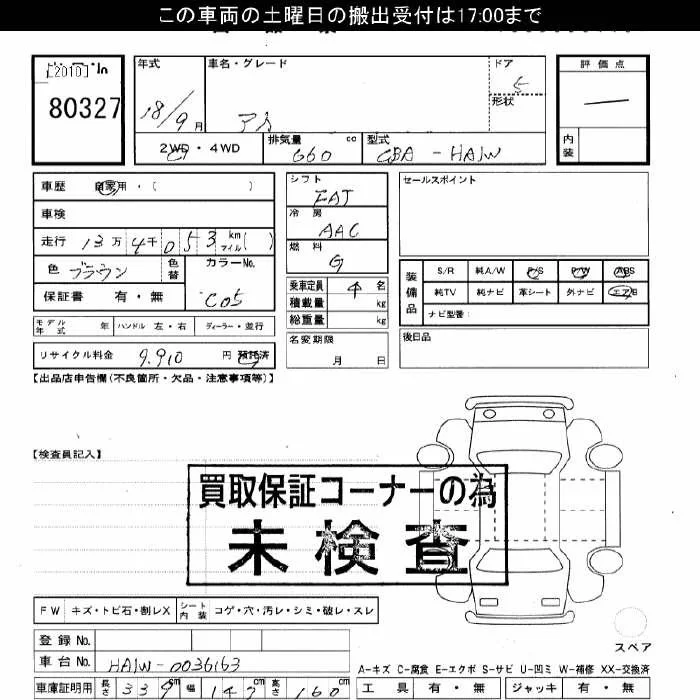 この車両の土曜日の搬出受付は17:00まで
[2010]
80327
年式 車名・グレード ドア 5 評価点
形状
18/9月 アイ
2WD・4WD 排気量 660 cc 型式 CBA-HA1W 内装
車歴 自家用・( )
車検
走行 13万4千053 km マイル( )
色 ブラウン 色替 カラーNo. C05
保証書 有・無
モデル年式 年 ハンドル 左・右 ディーラー・並行
リサイクル料金 9.910 円 預託済
シフト FAT
冷房 AAC
燃料 G
乗車定員 4 名
積載量 kg
総重量 kg
名変期限 月 日
セールスポイント
装備品 S/R 純A/W P/S P/W ABS
純TV 純ナビ 革シート 外ナビ エアB
ナビ型番:
後日品
【出品店申告欄(不良箇所・欠品・注意事項等)】
【検査員記入】
買取保証コーナーの為
未検査
FW キズ・トビ石・割レX シート内装 コゲ・穴・汚レ・シミ・破レ・スレ
登録No.
車台No. HA1W-0036163
スペア
A-キズ C-腐食 E-エクボ S-サビ U-凹ミ W-補修 XX-交換済
車庫証明用 長さ 339cm 幅 147cm 高さ 160cm
工具 有・無 ジャッキ 有・無